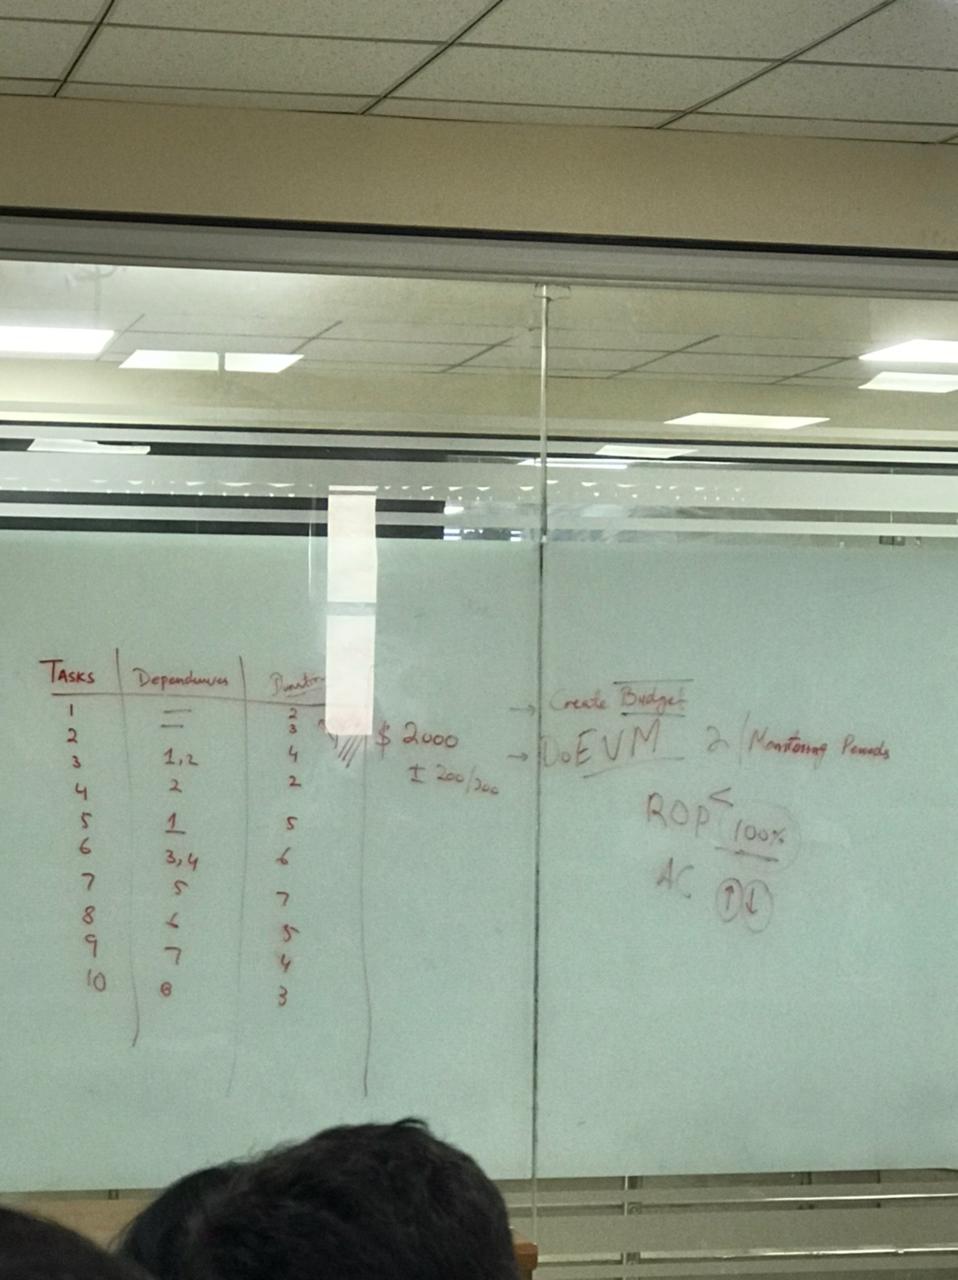 TASKS Dependences Duration
1 — 2
2 — 3
3 1,2 4
4 2 2
5 1 5
6 3,4 6
7 5 7
8 6 5
9 7 4
10 8 3
$ 2000
± 200/300
→ Create Budget
→ Do EVM 2/Monitoring Periods
ROP < 100%
AC ↑ ↓